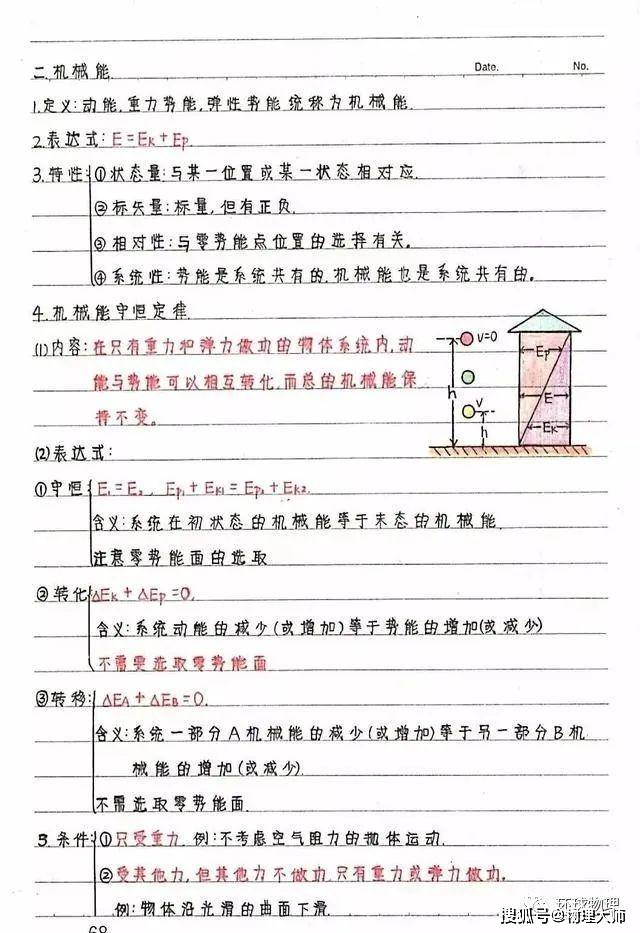 Date.
No.
二.机械能
1.定义:动能,重力势能,弹性势能统称为机械能.
2.表达式:E=Ek+Ep
3.特性:①状态量:与某一位置或某一状态相对应.
②标矢量:标量,但有正负.
③相对性:与零势能点位置的选择有关。
④系统性:势能是系统共有的.机械能也是系统共有的。
4.机械能守恒定律
(1)内容:在只有重力和弹力做功的物体系统内,动
能与势能可以相互转化,而总的机械能保
持不变。
v=0
h
v
h
Ep
E
Ek
(2)表达式:
①守恒 E₁=E₂ , Ep₁+Ek₁=Ep₂+Ek₂
含义:系统在初状态的机械能等于末态的机械能
注意零势能面的选取
②转化 ΔEk+ΔEp=0.
含义:系统动能的减少(或增加)等于势能的增加(或减少)
不需要选取零势能面
③转移: ΔEA+ΔEB=0.
含义:系统一部分A机械能的减少(或增加)等于另一部分B机
械能的增加(或减少).
不需选取零势能面.
5.条件:①只受重力.例:不考虑空气阻力的抛体运动.
②受其他力,但其他力不做功.只有重力或弹力做功.
例:物体沿光滑的曲面下滑.
68
环球物理
搜狐号@物理大师